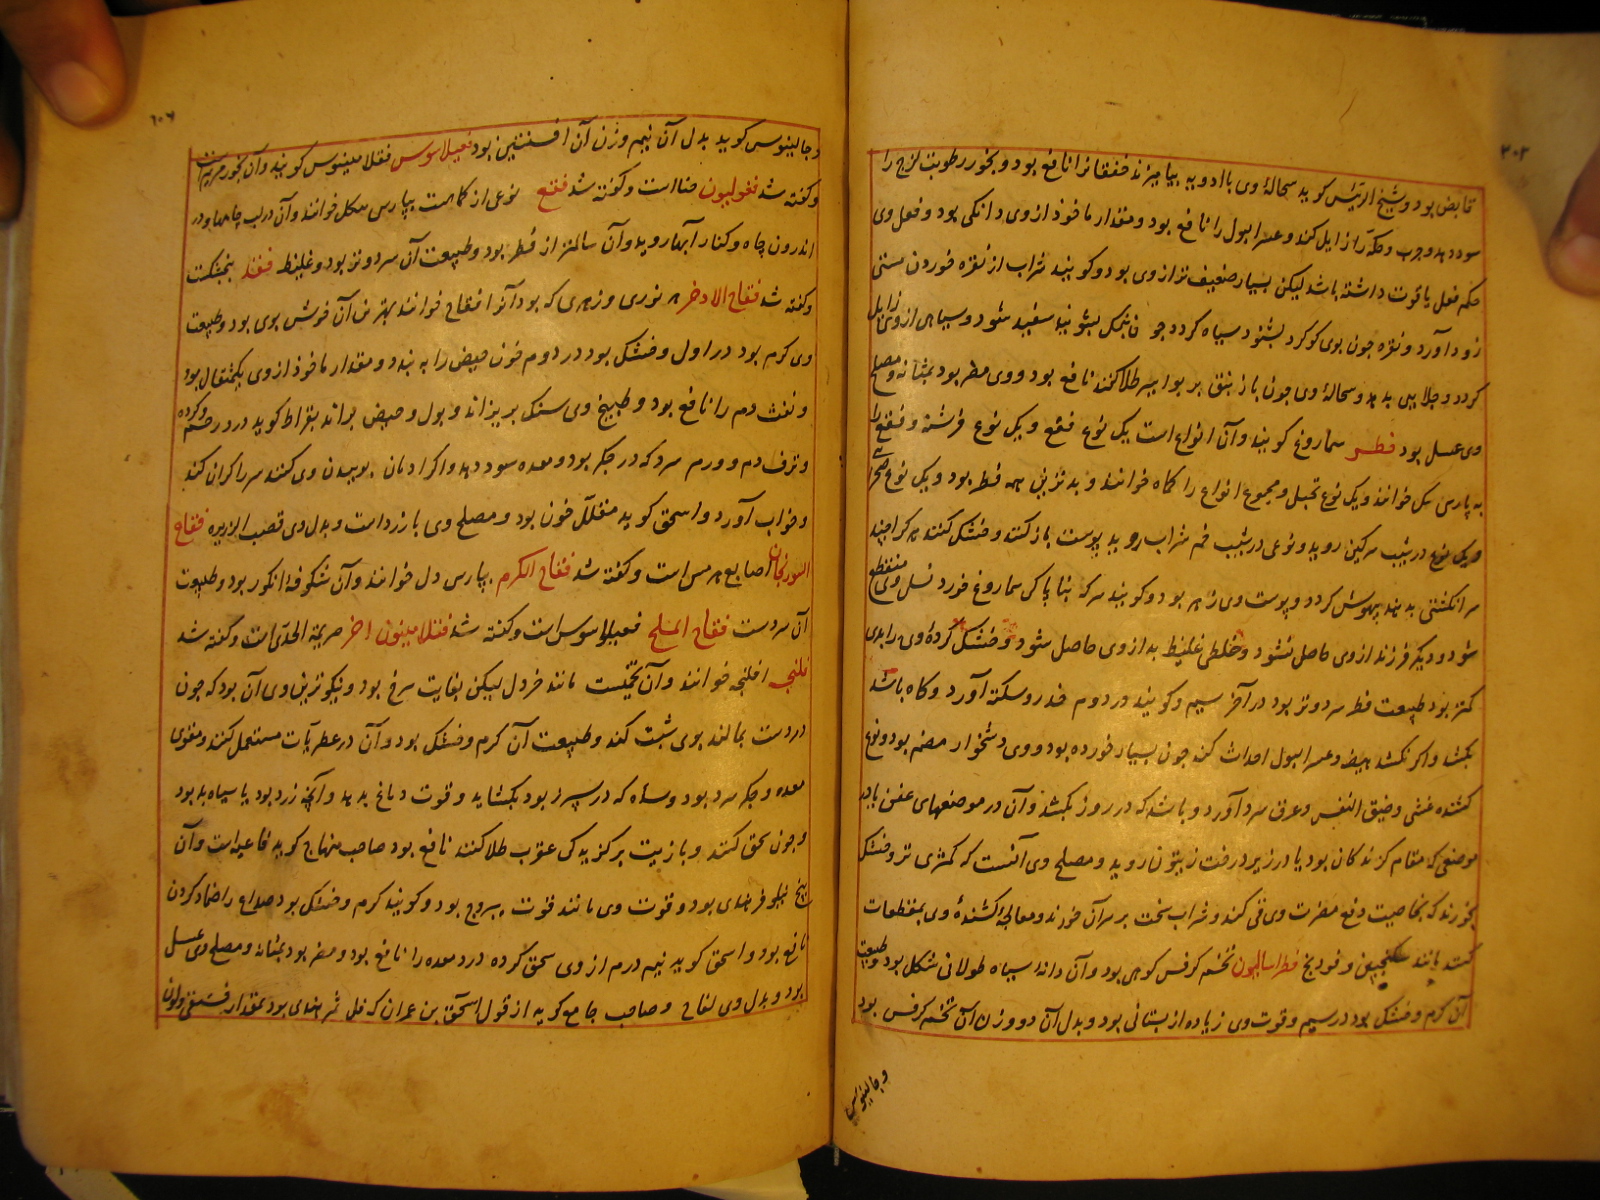 ٢٠٢
قابض بود و شیخ الرئیس کوید سحالهٔ وی با ادویه بیامیزند خفقانرا نافع بود و بخور رطوبت لزج را
سود دهد و جرب و حکه را زایل کند و عسر البول را نافع بود و مقدار ماخوذ از وی دانکی بود و فعل وی
حکم فعل یاقوت داشته باشد لیکن بسیار ضعیف تر از وی بود و کویند شراب از نقره خوردن مستی
زود آورد و نقره جون بوی کوکرد بشنود سیاه کردد جون بنمک بشویند سفید شود و سیاهی از وی زایل
کردد و جلایی بدهد و سحالهٔ وی جون با زیبق بر بواسیر طلا کنند نافع بود و وی مضر بود بمثانه و مصلح
وی عسل بود فطر سماروغ کویند و آن انواع است یک نوع فقع و یک نوع فرشته و فقع را
به پارسی کل خوانند و یک نوع و مجموع انواع را کماه خوانند و بدترین همه فطر بود و یک نوع صحرا
و یک نوع در شیب سرکین روید و نوعی در شیب خم شراب روید پوست باز کنند و خشک کنند هر کرا جند
سر انکشتی بدهند بیهوش کردد و پوست وی زهر بود و کویند هر که بناپاکی سماروغ خورد نسل وی منقطع
شود و دیکر فرزند از وی حاصل نشود و خلطی غلیظ بد از وی حاصل شود و خشک کردهٔ وی را بدی
کمتر بود طبیعت فطر سرد و تر بود در آخر سیم و کویند در دوم خدر و سکته آورد و کاه باشد
بکشد و اکر نکشد هیضه و عسر البول احداث کند جون بسیار خورده بود و وی دشخوار هضم بود و نوع
کشنده غشی و ضیق النفس و عرق سرد آورد و باشد که در روز بکشد و آن در موضعهای عفن یا در
موضعی که مقام کزندکان بود یا در زیر درخت زیتون روید و مصلح وی آنست که کمثری تر و خشک
بخورند که بخاصیت دفع مضرت وی قی کنند و شراب سخت بر سر آن خورند و معالجهٔ کشندهٔ وی بمقطعات
کنند مانند سکنجبین و فودنج فطراسالیون تخم کرفس کوهی بود و آن دانهٔ سیاه طولانی شکل بود و طبیعت
آن کرم و خشک بود در سیم و قوت وی زیاده از بستانی بود و بدل آن دو وزن آن تخم کرفس بود
و جالینوس
و جالینوس کوید بدل آن نیم وزن آن افسنتین بود فعیلاسوس فقلامینوس کویند و آن بخور مریم است
و کفته شد فغولیون ضا است و کفته شد فقع نوعی از کماست بپارسی کل خوانند و آن در لب جاها و در
اندرون جاه و کنار آبها روید و آن سالمتر از فطر بود و طبیعت آن سرد و تر بود و غلیظ فقد بنجنکشت
و کفته شد فقاح الاذخر هر نوری و زهری که بود آنرا فقاح خوانند بهترین آن خوش بوی بود و طبیعت
وی کرم بود در اول و خشک بود در دوم خون حیض را به بندد و مقدار ماخوذ از وی یکمثقال بود
و نفث دم را نافع بود و طبیخ وی سنک بریزاند و بول و حیض براند بقراط کوید درد رحم و کرده
و نزف دم و ورم سرد که در جکر بود و معده سود دهد و اکر ادمان بوییدن وی کنند سر را کران کند
و خواب آورد و اسحق کوید مقلل خون بود و مصلح وی بارزد است و بدل وی قصب الذریره فقاح
السورنجان اصابع هرمس است و کفته شد فقاح الکرم بپارسی دل خوانند و آن شکوفهٔ انکور بود و طبیعت
آن سردست فقاح الملح فعیلاسوس است و کفته شد فقلامینون اخر صریمة الجدی است و کفته شد
فلنجه افلنجه خوانند و آن تخمیست مانند خردل لیکن بغایت سرخ بود و نیکوترین وی آن بود که جون
در دست بمالند بوی سیب کند و طبیعت آن کرم و خشک بود و آن در عطریات مستعمل کنند و مقوی
معده و جکر سرد بود و سدهٔ که در سپرز بود بکشاید و قوت دماغ بدهد و آنجه زرد بود یا سیاه بد بود
و جون سحق کنند و با زیت بر کزیدکی عقرب طلا کنند نافع بود صاحب منهاج کوید فاغیه است و آن
بیخ نیلوفر هندی بود و قوت وی مانند قوت یبروج بود و کویند کرم و خشک بود صداع را ضماد کردن
نافع بود و اسحق کوید نیم درم از وی سحق کرده درد معده را نافع بود و مضر بود بمثانه و مصلح وی عسل
بود و بدل وی لفاح و صاحب جامع کوید از قول اسحق بن عمران که فل ثمر هندی بود بمقدار فستقی و لون